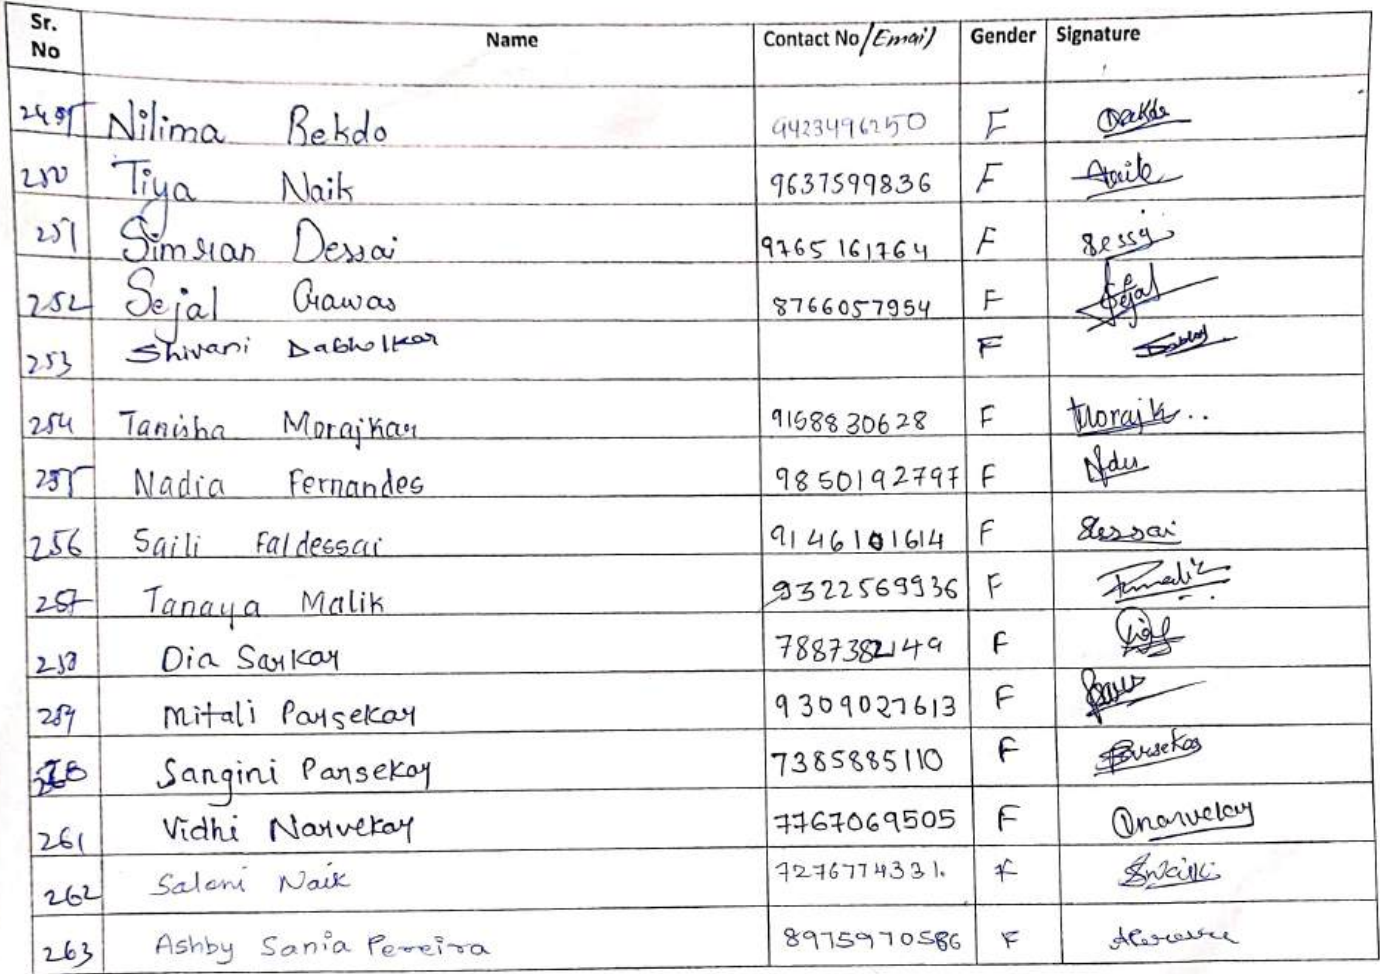 Sr. No Name Contact No/(Email) Gender Signature
Nilima Bekdo 9423496250 F
250 Tiya Naik 9637599836 F Naik
251 Simran Dessai 9765 161764 F
252 Sejal Gawas 8766057954 F Sejal
253 Shivani Dabholkar F
254 Tanisha Morajkar 9158830628 F Morajk..
255 Nadia Fernandes 9850192797 F
256 Saili Faldessai 9146101614 F Dessai
257 Tanaya Malik 9322569936 F
258 Dia Sarkar 7887382149 F
259 Mitali Parsekar 9309027613 F
Sangini Parsekar 7385885110 F Parsekar
261 Vidhi Narvekar 7767069505 F
262 Saloni Naik 7276774331. F SNaik
263 Ashby Sania Pereira 8975970586 F